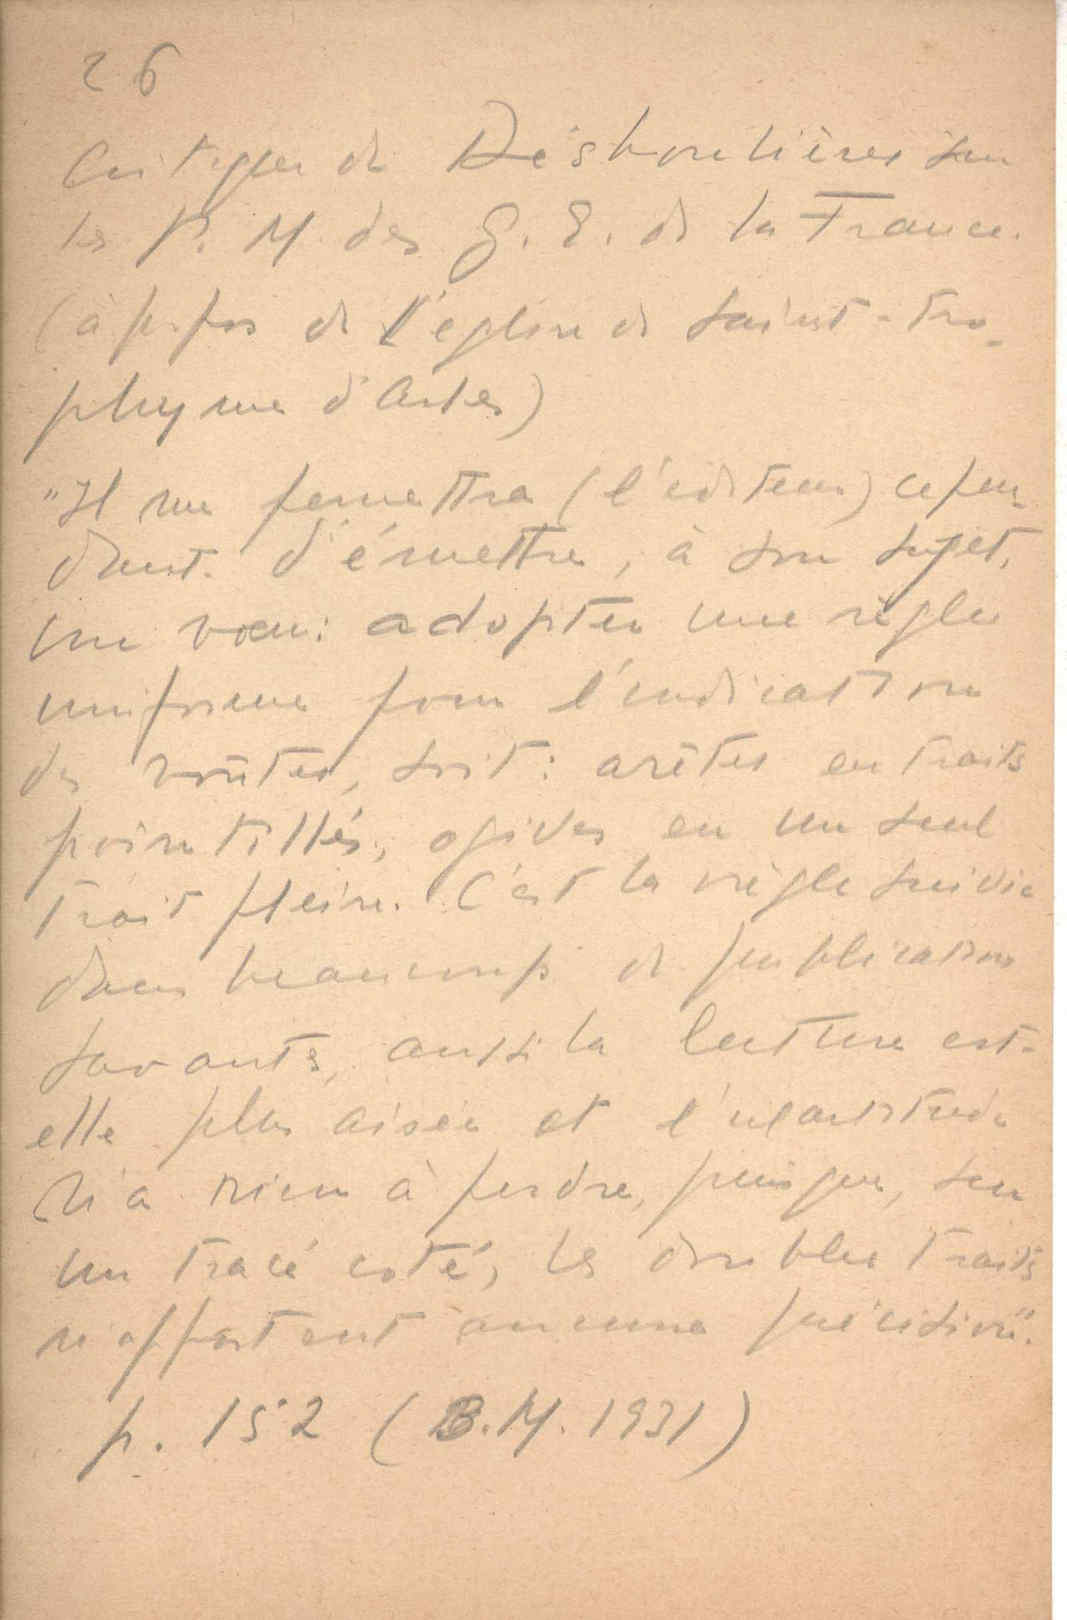 26
Critique de Déshoulières sur
les P. M. des G. E. de la France.
(à propos de l'église de Saint-Tro-
phyme d'Arles)
"Il me permettra (l'éditeur) cepen-
dant d'émettre, à son sujet,
un vœu: adopter une règle
uniforme pour l'indication
des voûtes, soit: arêtes en traits
pointillés, ogives en un seul
trait plein. C'est la règle suivie
dans beaucoup de publications
savants, aussi la lecture est-
elle plus aisée et l'exactitude
n'a rien à perdre, puisque, sur
un tracé coté, les doubles traits
n'apportent aucune précision".
p. 152 (B.M. 1931)